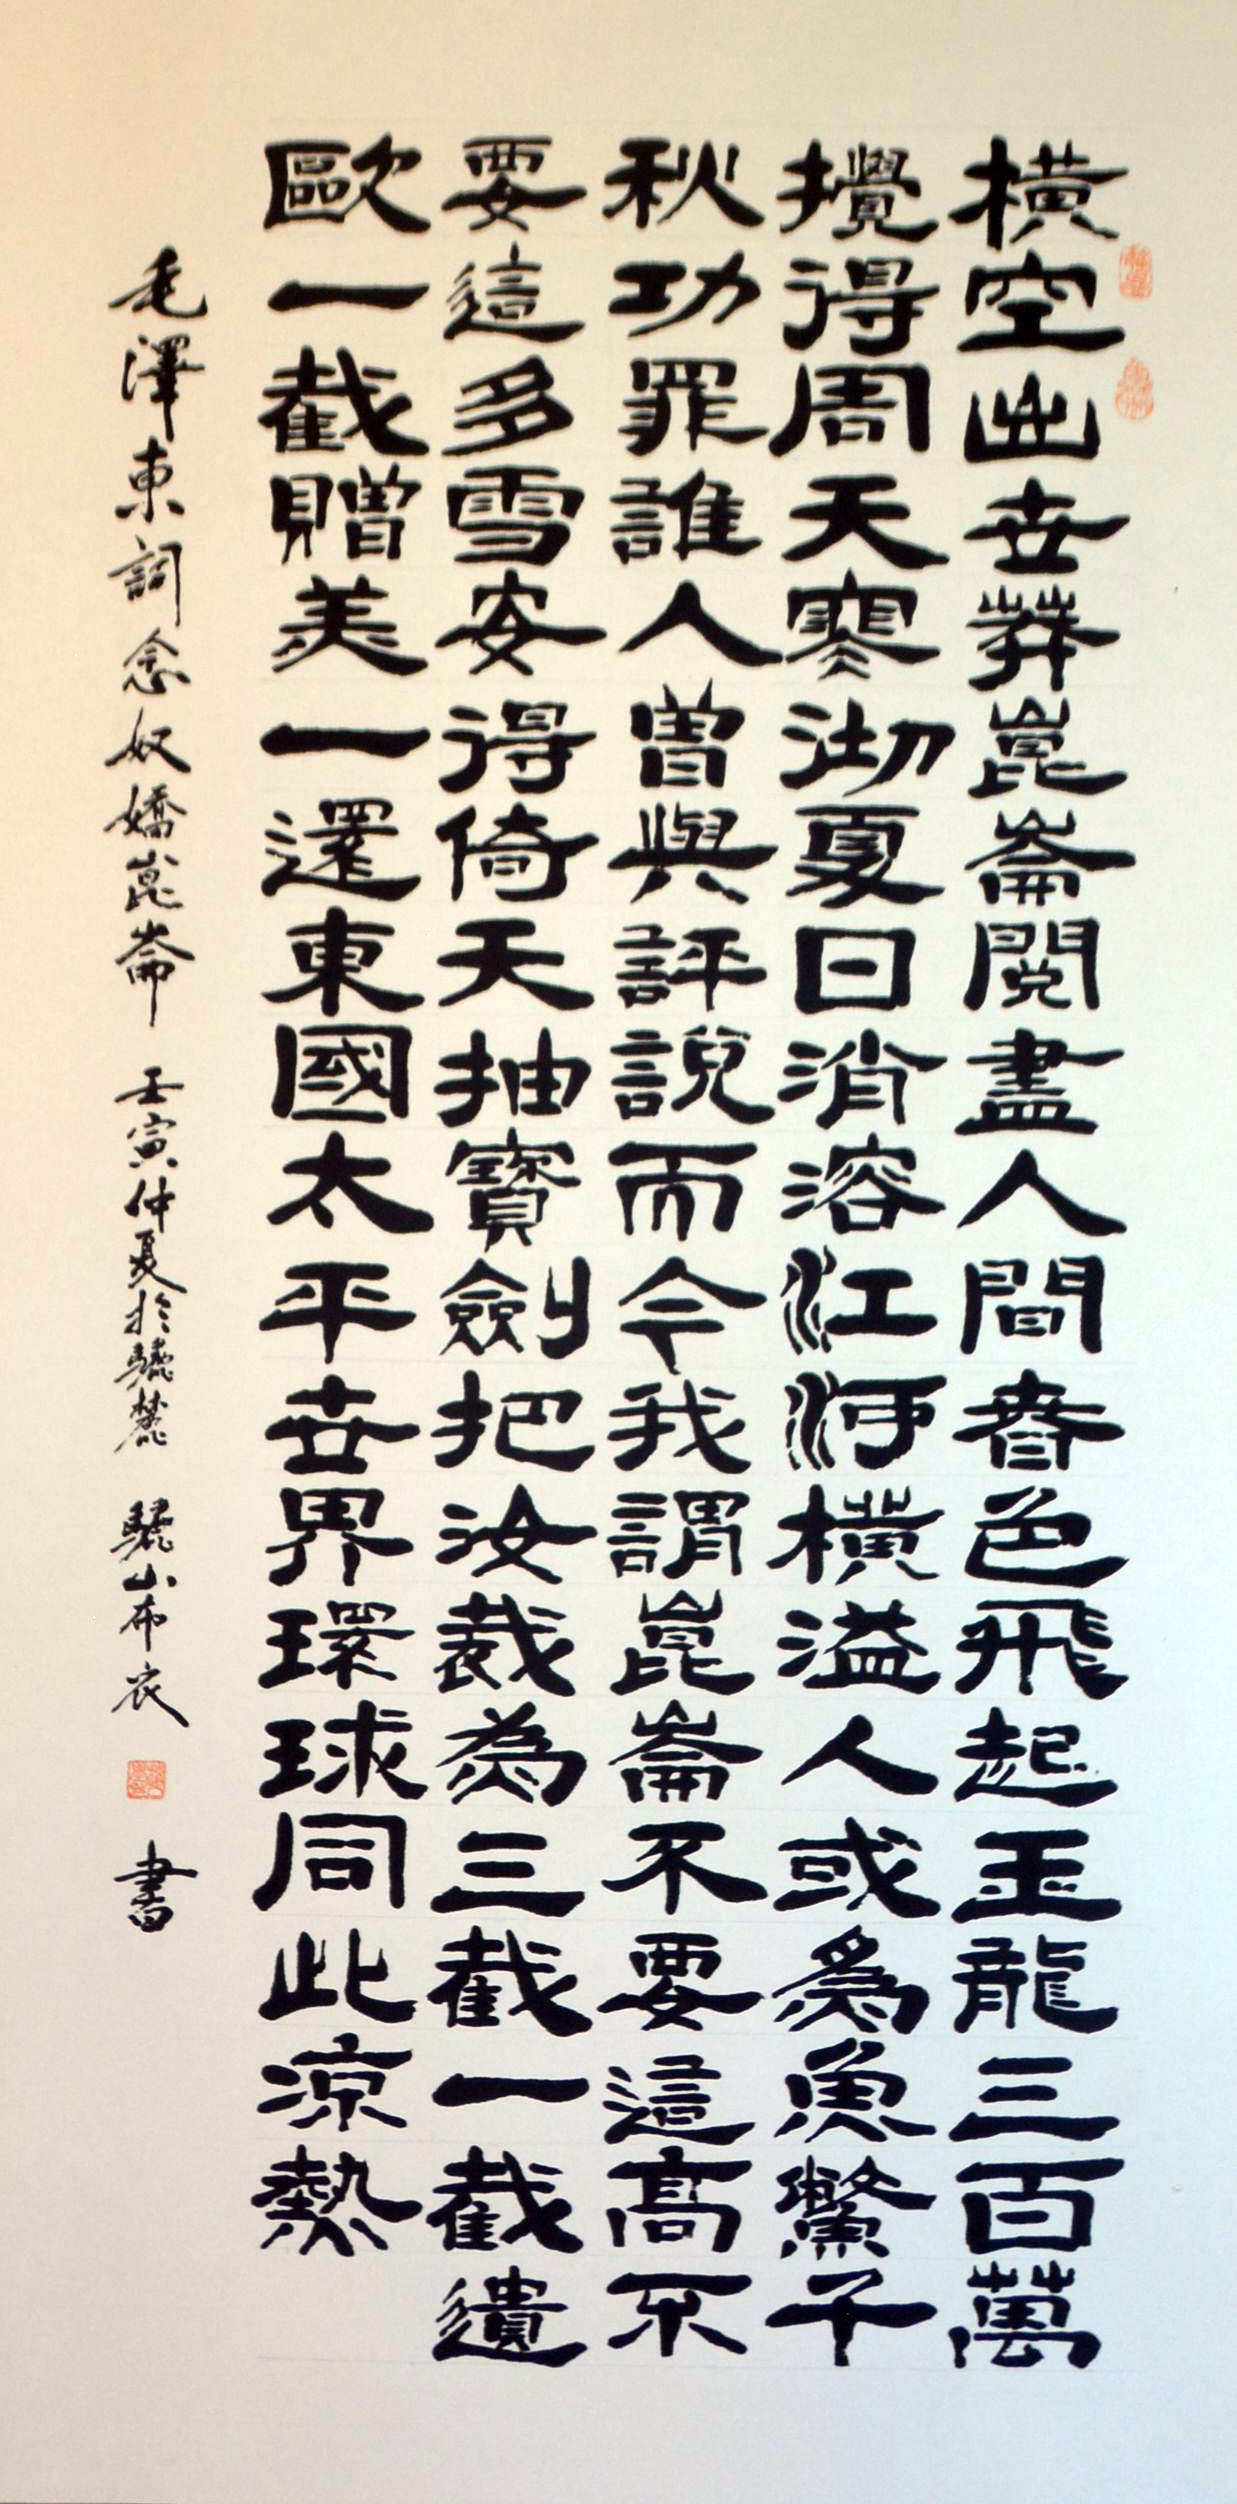 橫空出世莽崑崙閱盡人間春色飛起玉龍三百萬
攪得周天寒沏夏日消溶江河橫溢人或為魚鱉千
秋功罪誰人曾與評說而今我謂崑崙不要這高不
要這多雪安得倚天抽寶劍把汝裁為三截一截遺
歐一截贈美一還東國太平世界環球同此涼熱
毛澤東詞念奴嬌崑崙 壬寅仲夏於驪麓 驪山布衣 書